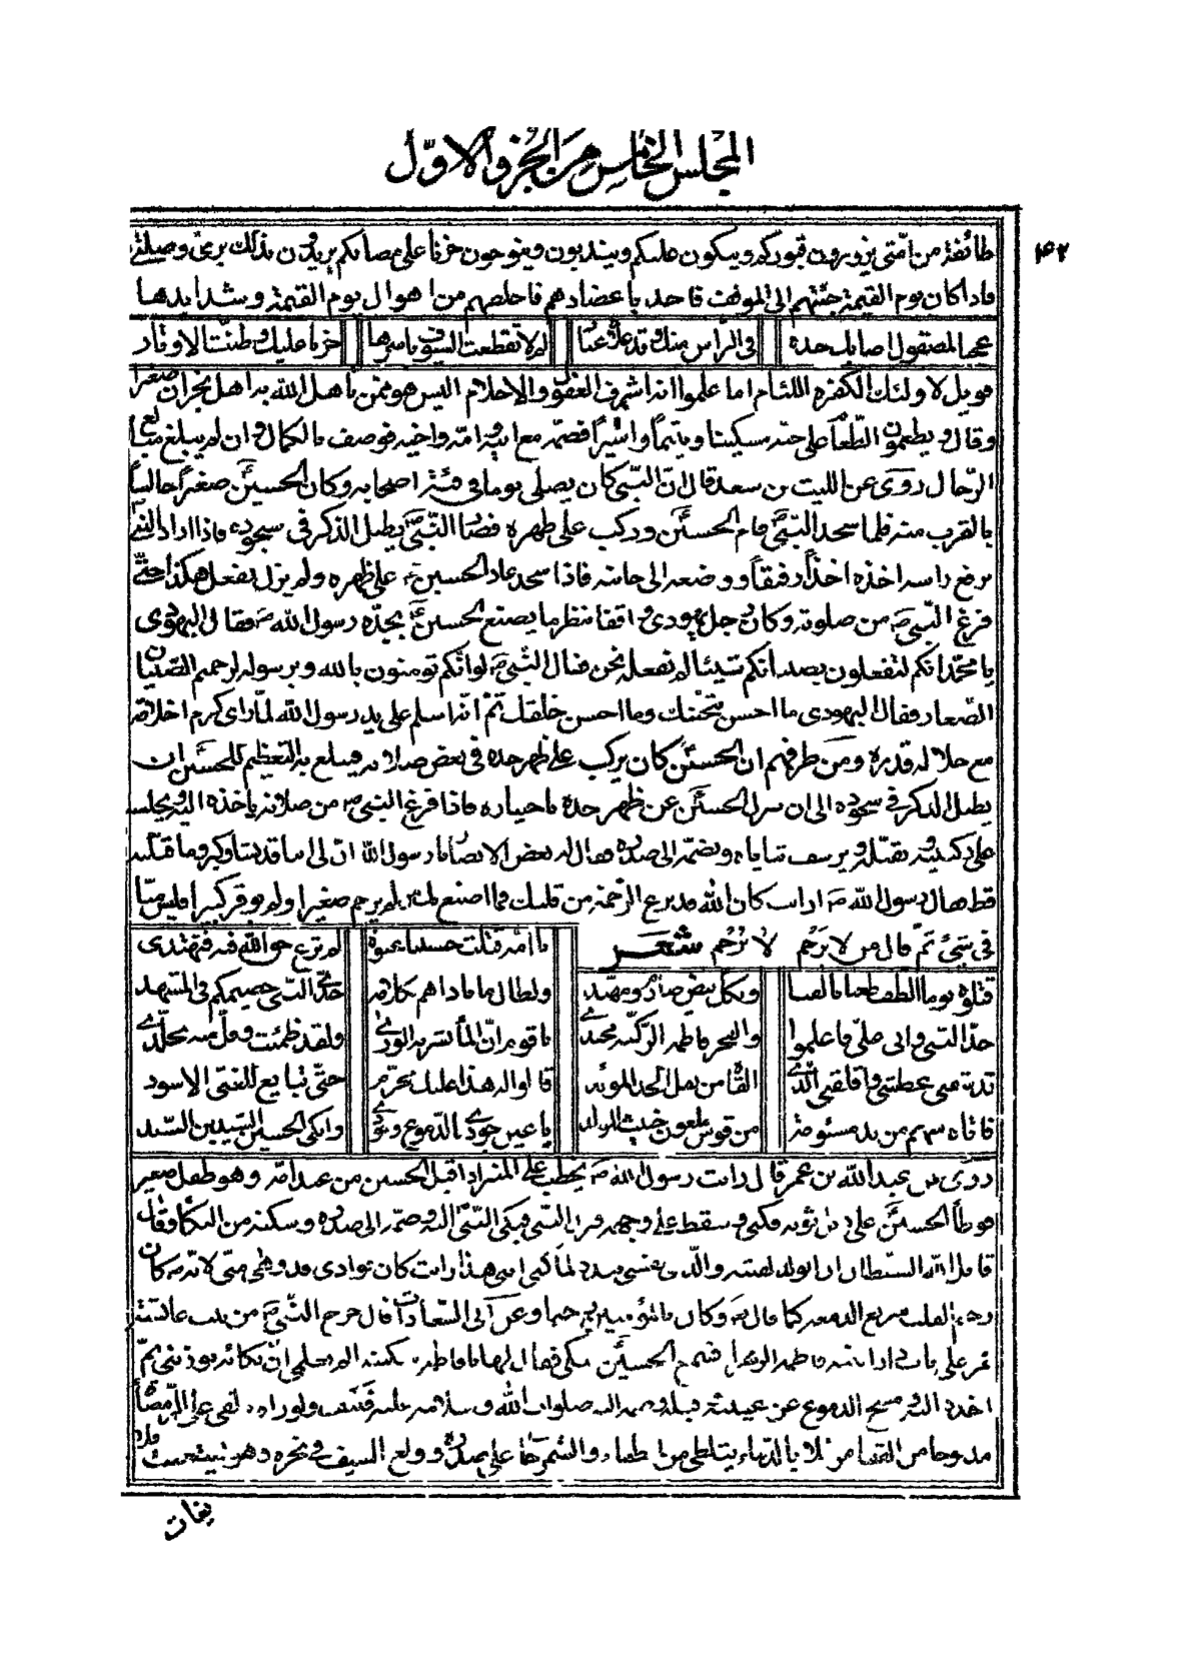 المجلس الخامس من الجزو الاوّل
۴۲
طائفة من امّتى يزورون قبوركم ويبكون عليكم ويندبون وينوحون حزنا على مصابكم يريدون بذلك برى وصلتى
فاذا كان يوم القيمة جئتهم الى الموقف فاخذ باعضادهم فاخلصهم من اهوال يوم القيمة وشدايدها
عجبا لمصقول اصابك حده فى الرأس منك وقد علاك غبار
لم لا تقطعت السيوف باسرها حزنا عليك وطنّت الاوتار
فويل لاولئك الكفره اللئام اما علموا انه اشرف العقول والاحلام اليس هو ممن باهل الله به اهل نجران صغيرا
وقال ويطعمون الطّعام على حبه مسكينا ويتيماً واسيراً فضمّه مع ابيه وامّه واخيه فوصف بالكمال وان لم يبلغ مبلغ
الرّجال روى عن الليث بن سعد قال انّ النّبى كان يصلى يوما فى فئة اصحابه وكان الحسينؑ صغيراً جالساً
بالقرب منه فلما سجد النبىؐ قام الحسينؑ وركب على ظهره فصار النّبىؐ يطيل الذكر فى سجوده فاذا اراد النبى
يرفع راسه اخذه اخذاً رفيقاً ووضعه الى جانبه فاذا سجد عاد الحسينؑ على ظهره ولم يزل يفعل هكذا حتّى
فرغ النّبى ص من صلوته وكان رجل يهودى واقفا ينظر ما يصنع الحسينؑ بجدّه رسول الله ص فقال اليهودى
يا محمّد انكم لتفعلون بصبيانكم شيئا لم نفعله نحن فقال النّبى ص لو انّكم تومنون بالله وبرسوله لرحمتم الصّبيان
الصّغار فقال اليهودى ما احسن سجيتك وما احسن خلقك ثمّ انّه اسلم على يد رسول الله لمّا راى كرم اخلاقه
مع جلالة قدره ومن طرقهم ان الحسينؑ كان يركب على ظهر جده فى بعض صلاته فيبلغ به التعظيم للحسينؑ ان
يطيل الذكر فى سجوده الى ان ينزل الحسينؑ عن ظهر جده باختياره فاذا فرغ النبى ص من صلاته ياخذه اليه ويجلسه
على ركبتيه ويقبّله ويرشف ثناياه ويضمّه الى صدره فقال له بعض الانصار يا رسول الله انّ لى ابنا قد نشا وكبر وما قبّلته
قط فقال رسول الله ص اراىت ان كان الله قد نزع الرّحمة من قلبك فما اصنع لك من لم يرحم صغيرا ولم يوقر كبيرا فليس منّا
فى شىء ثمّ قال من لا يَرحَم لا يُرحَم شعر
يا امّة قتلت حسينا عنوة لم ترع حق الله فيه فتهتدى
قتلوه يوم الطف طعنا بالقنا وبكل ابيض صارم ومهنّد
ولطال ما ناداهم بكلامه جدّى النبى خصيمكم فى المشهد
جدّ النبى وابى علىّ فاعلموا والفخر فاطم الزكيّه محتدى
يا قوم انّ المآء يشربه الورى ولقد ظمئت وقلّ منه تجلّدى
قد شفنى عطشى واقلقنى الّذى القاه من ثقل الحديد الموئد
قالوا له هذا عليك محرّم حتّى تبايع للغنى الاسود
فاتاه سهم من يد مشئومة من قوس ملعون خبيث المولد
يا عين جودى بالدموع وجوّدى وابكى الحسين السّيد بن السّيد
روى عن عبد الله بن عمر قال رايت رسول الله ص يخطب على المنبر اذ اقبل الحسين من عند امّه وهو طفل صغير
فوطأ الحسينؑ على ذيل ثوبه فكبى وسقط على وجهه فبكى فنزل النّبى اليه وضمّه الى صدره وسكّته من البكآء وقال
قاتل الله الشيطان ان الولد لفتنه والّذى نفسى بيده لما كبى ابنى هذا رايت كان فوادى قد وهى منى لانه ص كان
رحيم القلب سريع الدمعه كما قال تع وكان بالمؤمنين رحيما وعن ابى السعادات قال خرج النّبى ص من بيت عائشة
فمر على باب دار ابنته فاطمة الزهرا فسمع الحسينؑ يبكى فقال لها يا فاطمه سكتيه الم تعلمى انّ بكائه يوذينى ثمّ
اخذه اليه ومسح الدموع عن عينيه وقبله وضمه اليه صلوات الله وسلامه عليه فكيف ولو راه ملقى على الرّمضآء
مذبوحا من القفا مرملا بالدّماء يتلظى من الظمآء والشمر جالس على صدره وولغ السيف فى نحره وهو يستغيث فلا
يغاث